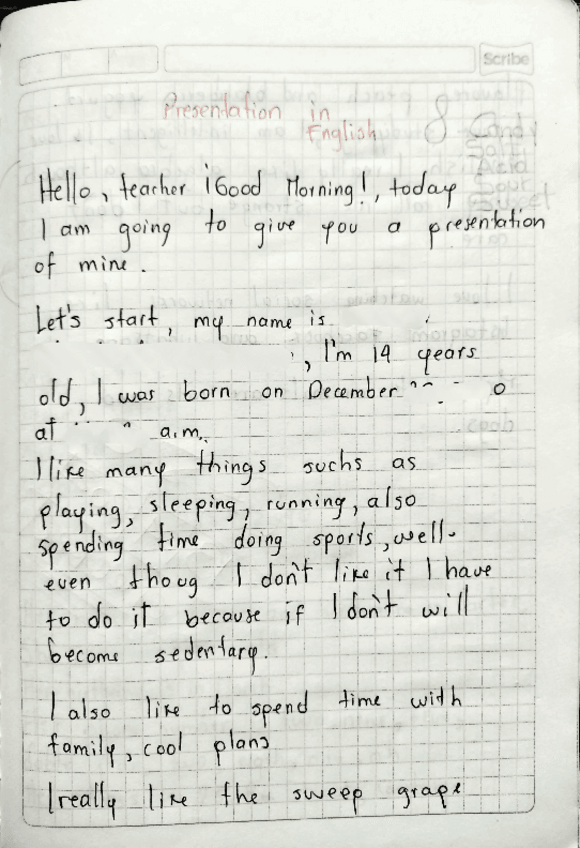 Scribe
Presentation in
English
8 Candy
Salt
Acid
Sour
Hello, teacher ¡Good Morning!, today
I am going to give you a presentation
of mine.
Let's start, my name is
, I'm 14 years
old, I was born on December
at a.m.
I like many things suchs as
playing, sleeping, running, also
spending time doing sports, well-
even thoug I don't like it I have
to do it because if I don't will
become sedentary.
I also like to spend time with
family, cool plans
I really like the sweep grape